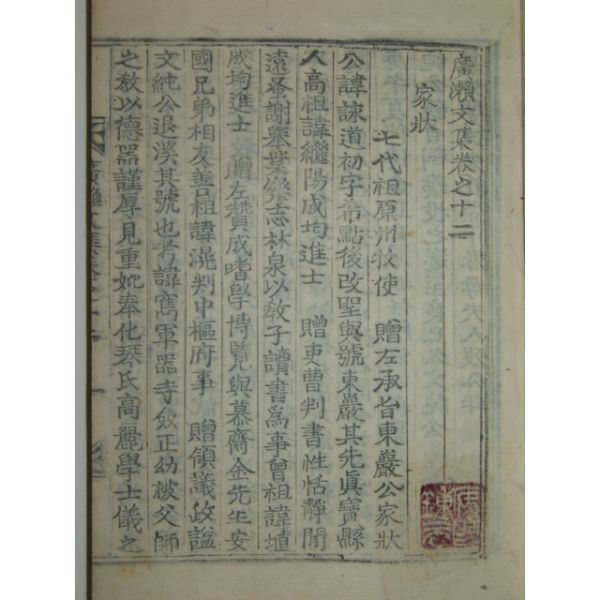 廣瀨文集卷之十二
家狀
七代祖原州牧使 贈左承旨東巖公家狀
公諱詠道初字希點後改聖與號東巖其先眞寶縣
人高祖諱繼陽成均進士 贈吏曹判書性恬靜閒
遠蚤謝擧業樂志林泉以敎子讀書爲事曾祖諱埴
成均進士 贈左贊成嗜學博覽與慕齋金先生安
國兄弟相友善祖諱滉判中樞府事 贈領議政諡
文純公退溪其號也考諱寯軍器寺僉正幼被父師
之敎以德器謹厚見重妣奉化琴氏高麗學士儀之